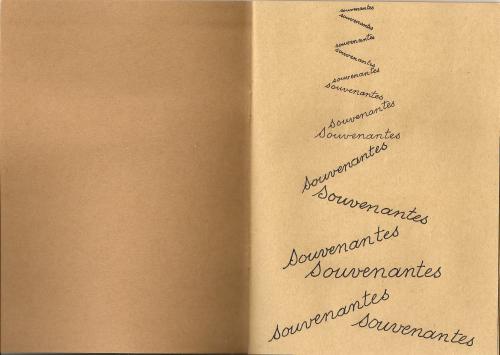 souvenantes
souvenantes
souvenantes
souvenantes
souvenantes
souvenantes
souvenantes
souvenantes
souvenantes
souvenantes
souvenantes
souvenantes
souvenantes
souvenantes